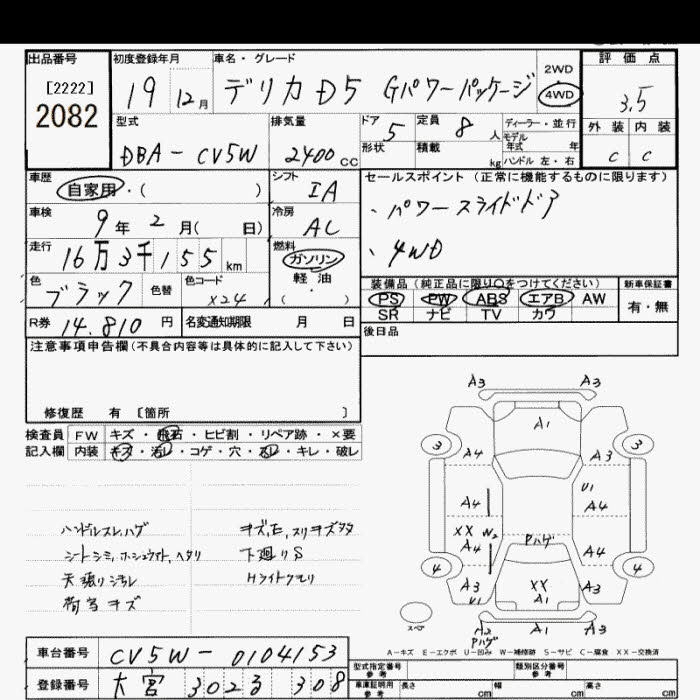 出品番号 初度登録年月 車名・グレード 2WD 評価点
[2222] 19 12月 デリカ D5 Gパワーパッケージ 4WD 3.5
2082
型式 排気量 ドア 5 定員 8 人 ディーラー・並行 外装 内装
DBA-CV5W 2400cc 形状 積載 kg モデル年式 年 C C
ハンドル 左・右
車歴 自家用・( ) シフト IA セールスポイント(正常に機能するものに限ります)
車検 9年 2月( 日) 冷房 AC ・パワースライドドア
走行 16万3千155km 燃料 ガソリン ・4WD
軽油
・
( )
色 ブラック 色替 色コード X24 装備品(純正品に限り○をつけてください) 新車保証書
PS PW ABS エアB AW 有・無
SR ナビ TV カワ
R券 14,810円 名変通知期限 月 日 後日品
注意事項申告欄(不具合内容等は具体的に記入して下さい)
修復歴 有 〔箇所 〕
検査員 FW キズ・飛石・ヒビ割・リペア跡・×要
記入欄 内装 キズ・汚レ・コゲ・穴・スレ・キレ・破レ
ハンドルスレ,ハゲ
シートシミ,ホシュウイト,ヘタリ
天張リヨゴレ
荷台キズ
下廻リS
Hライトクモリ
A3 A3
A1
3 3
A4 A3
U1
A4 A4
XX W2
A4 Pハゲ A4
4 4
A3 XX A3
U1 A1
スペア
A2 A1 A3
Pハゲ
A-キズ E-エクボ U-凹み W-補修跡 S-サビ C-腐食 XX-交換済
車台番号 CV5W-0104153
登録番号 大宮 302 る 308
型式指定番号 参考 類別区分番号 参考
車庫証明用 参考 長さ cm 幅 cm 高さ cm